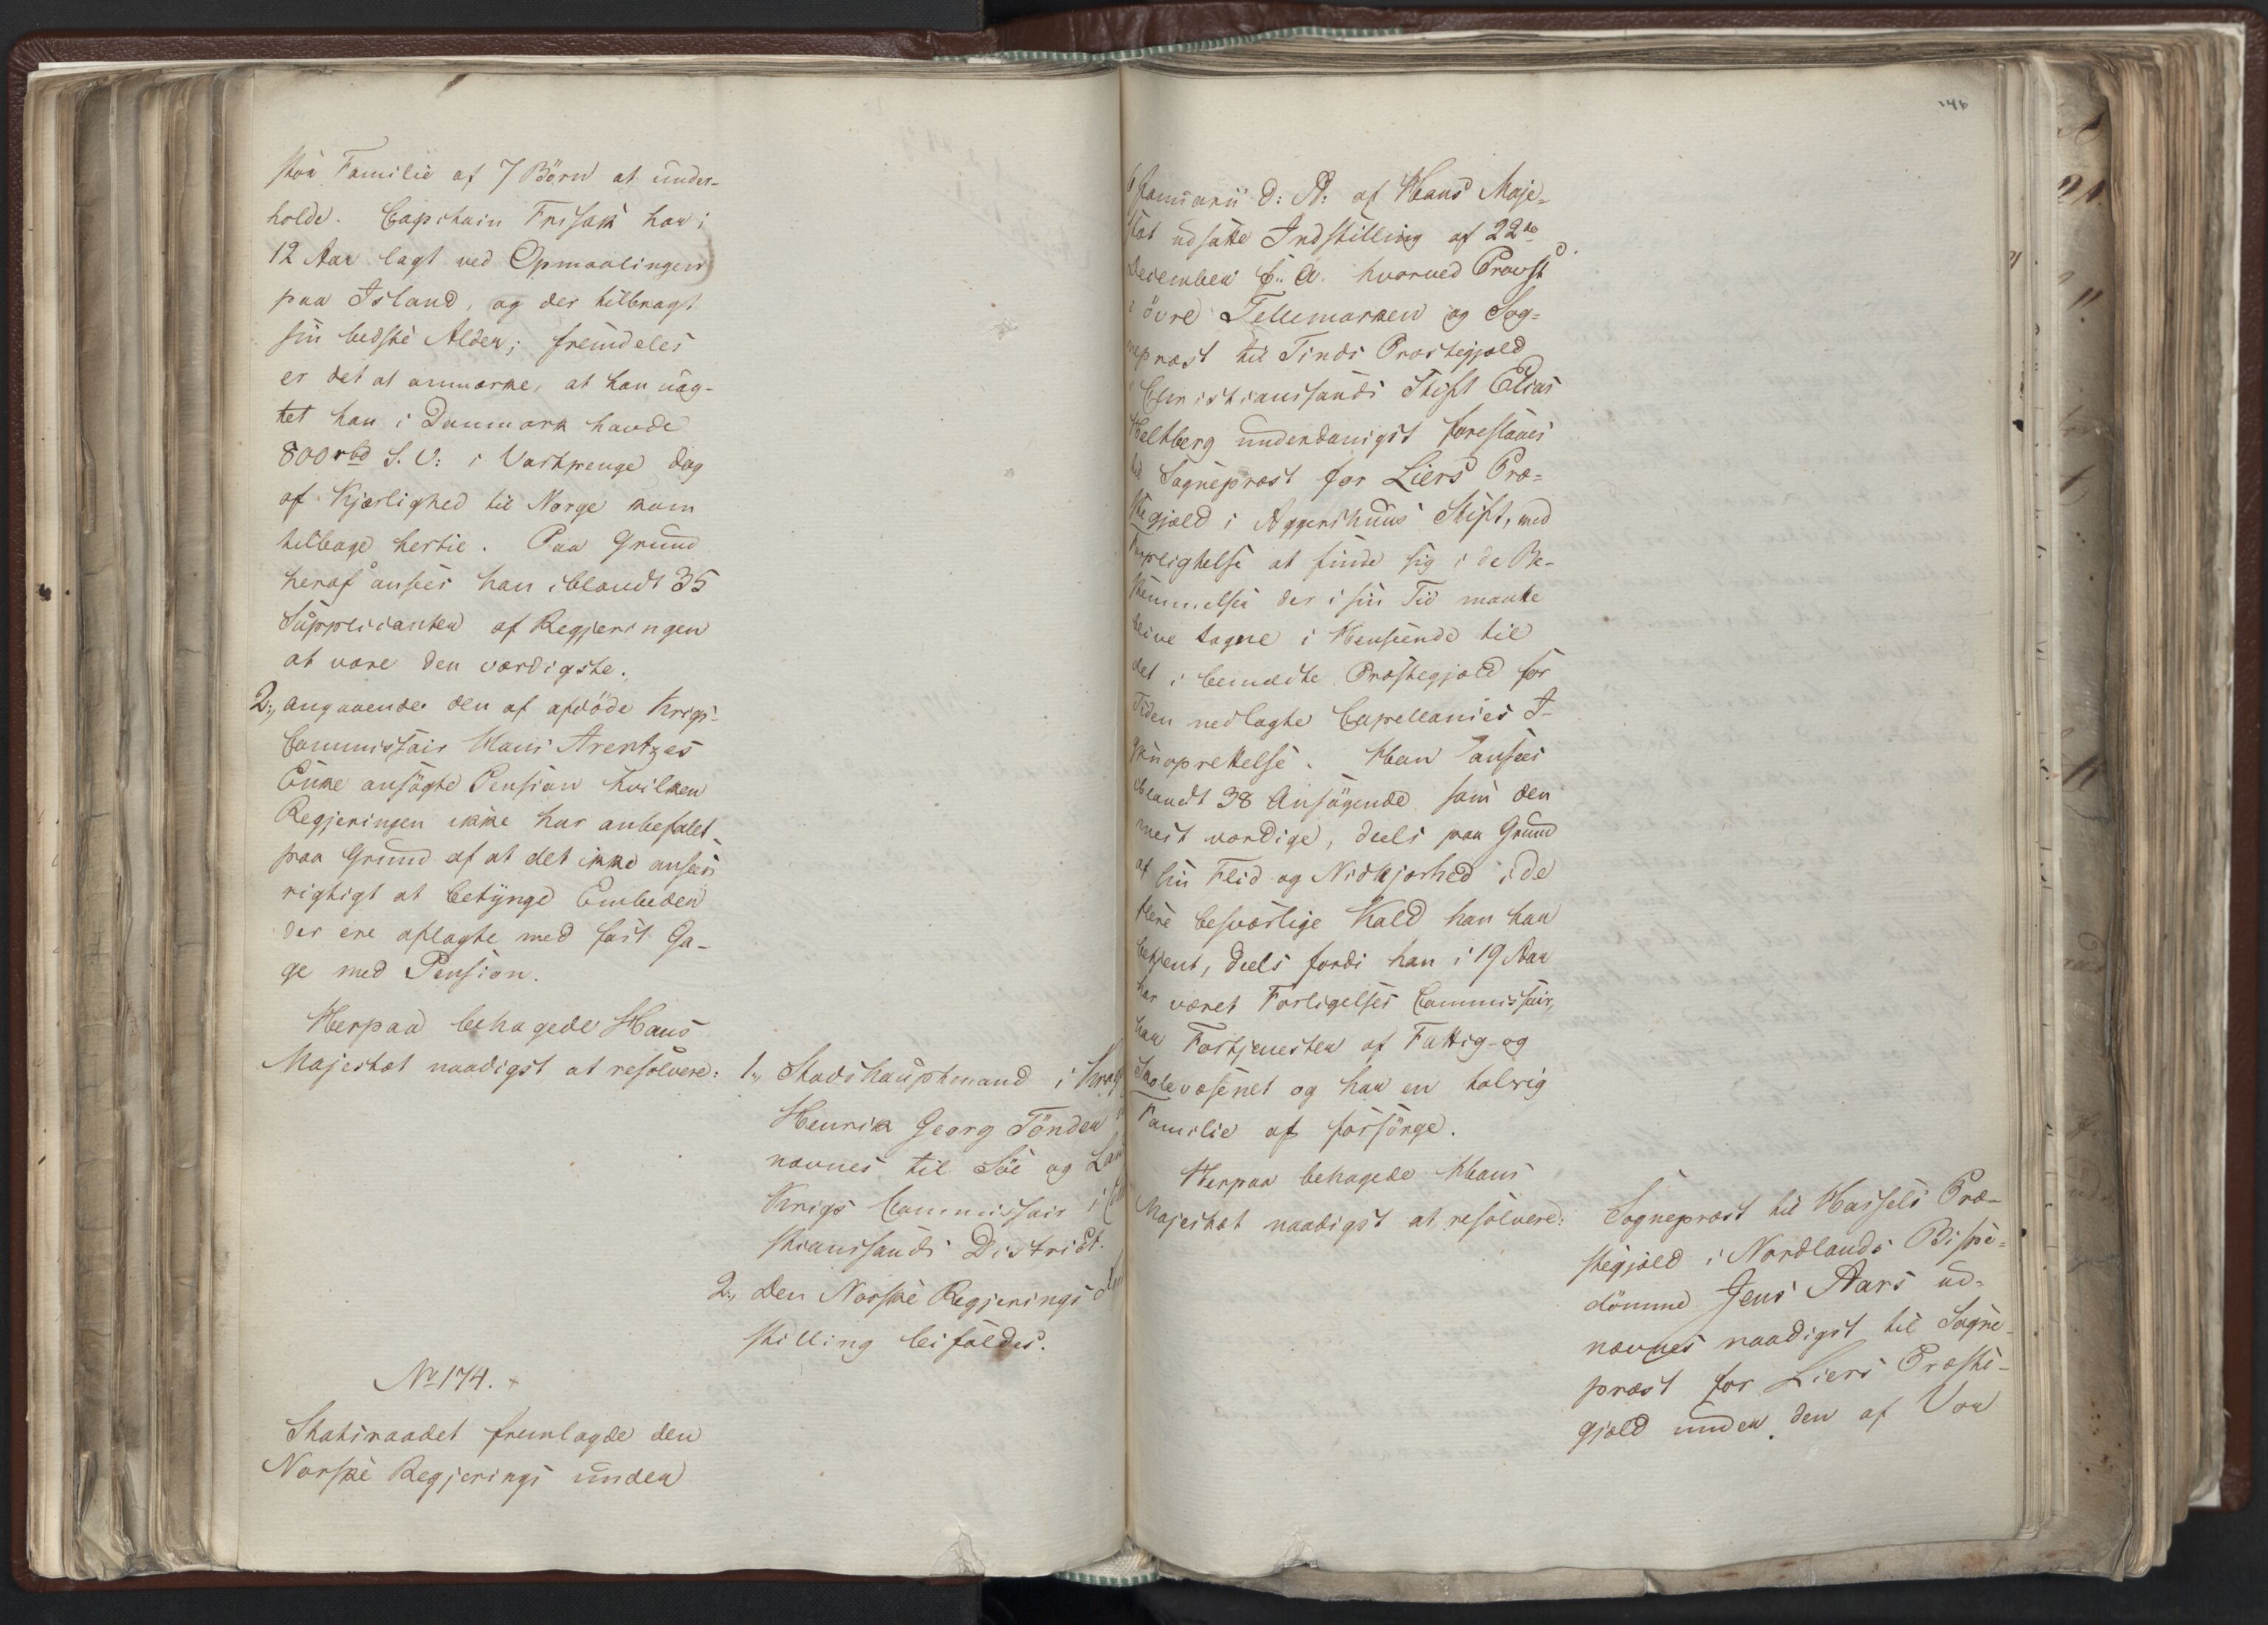 stor Familie af 7 Börn at under-
holde. Capitain Frisak har i
12 Aar lagt ved Opmaalingen
paa Island, og der tilbragt
sin bedste Alder; fremdeles
er det at anmærke, at han uag-
tet han i Danmark havde
800 rbd S. V: i Vartpenge dog
af Kjærlighed til Norge kom
tilbage hertil. Paa Grund
heraf ansees han iblandt 35
Supplicanter af Regjeringen
at være den værdigste.
2., angaaende den af afdöde Krigs-
Commissair Claus Arentzes
Enke ansögte Pension hvilken
Regjeringen ikke har anbefalet
paa Grund af at det ikke ansees
rigtigt at betynge Embeder
der ere aflagte med fast Ga-
ge med Pension.
Herpaa behagede Hans
Majestæt naadigst at resolvere:
1., Stadshauptmand i Krag
Henrik Georg Tönder
nævnes til Söe og Land
Krigs Commissair i
stianssands District.
2., Den Norske Regjerings
stilling bifaldes.
No 174.
Statsraadet fremlagde den
Norske Regjerings under
146
6 Januarii d: A: af Hans Maje-
stæt udsatte Indstilling af 22de
December f: A. hvorved Provst
i övre Tellemarken og Sog-
nepræst til Tinds Præstegjæld
i Christianssands Stift Elias
Heltberg underdanigst foreslaaes
til Sognepræst for Liers Præ-
stegjæld i Aggershuus Stift, med
Forpligtelse at finde sig i de Be-
stemmelser der i sin Tid maatte
blive tagne i Henseende til
det i bemeldte Præstegjæld for
Tiden nedlagte Capellanies I-
gjenoprettelse. Han ansees
iblandt 38 Ansögende som den
mest værdige, deels paa Grund
af sin Flid og Nidkjærhed i de
flere besværlige Kald han har
betjent, deels fordi han i 19 Aar
har været Forligelses Commissair,
har Fortjenester af Fattig- og
Skolevæsenet og har en talrig
Familie at forsörge.
Herpaa behagede Hans
Majestæt naadigst at resolvere:
Sognepræst til Hassels Præ-
stegjæld i Nordlands Bispe-
dömme Jens Aars ud-
nævnes naadigst til Sogne-
præst for Liers Præste-
gjæld under den af Vor